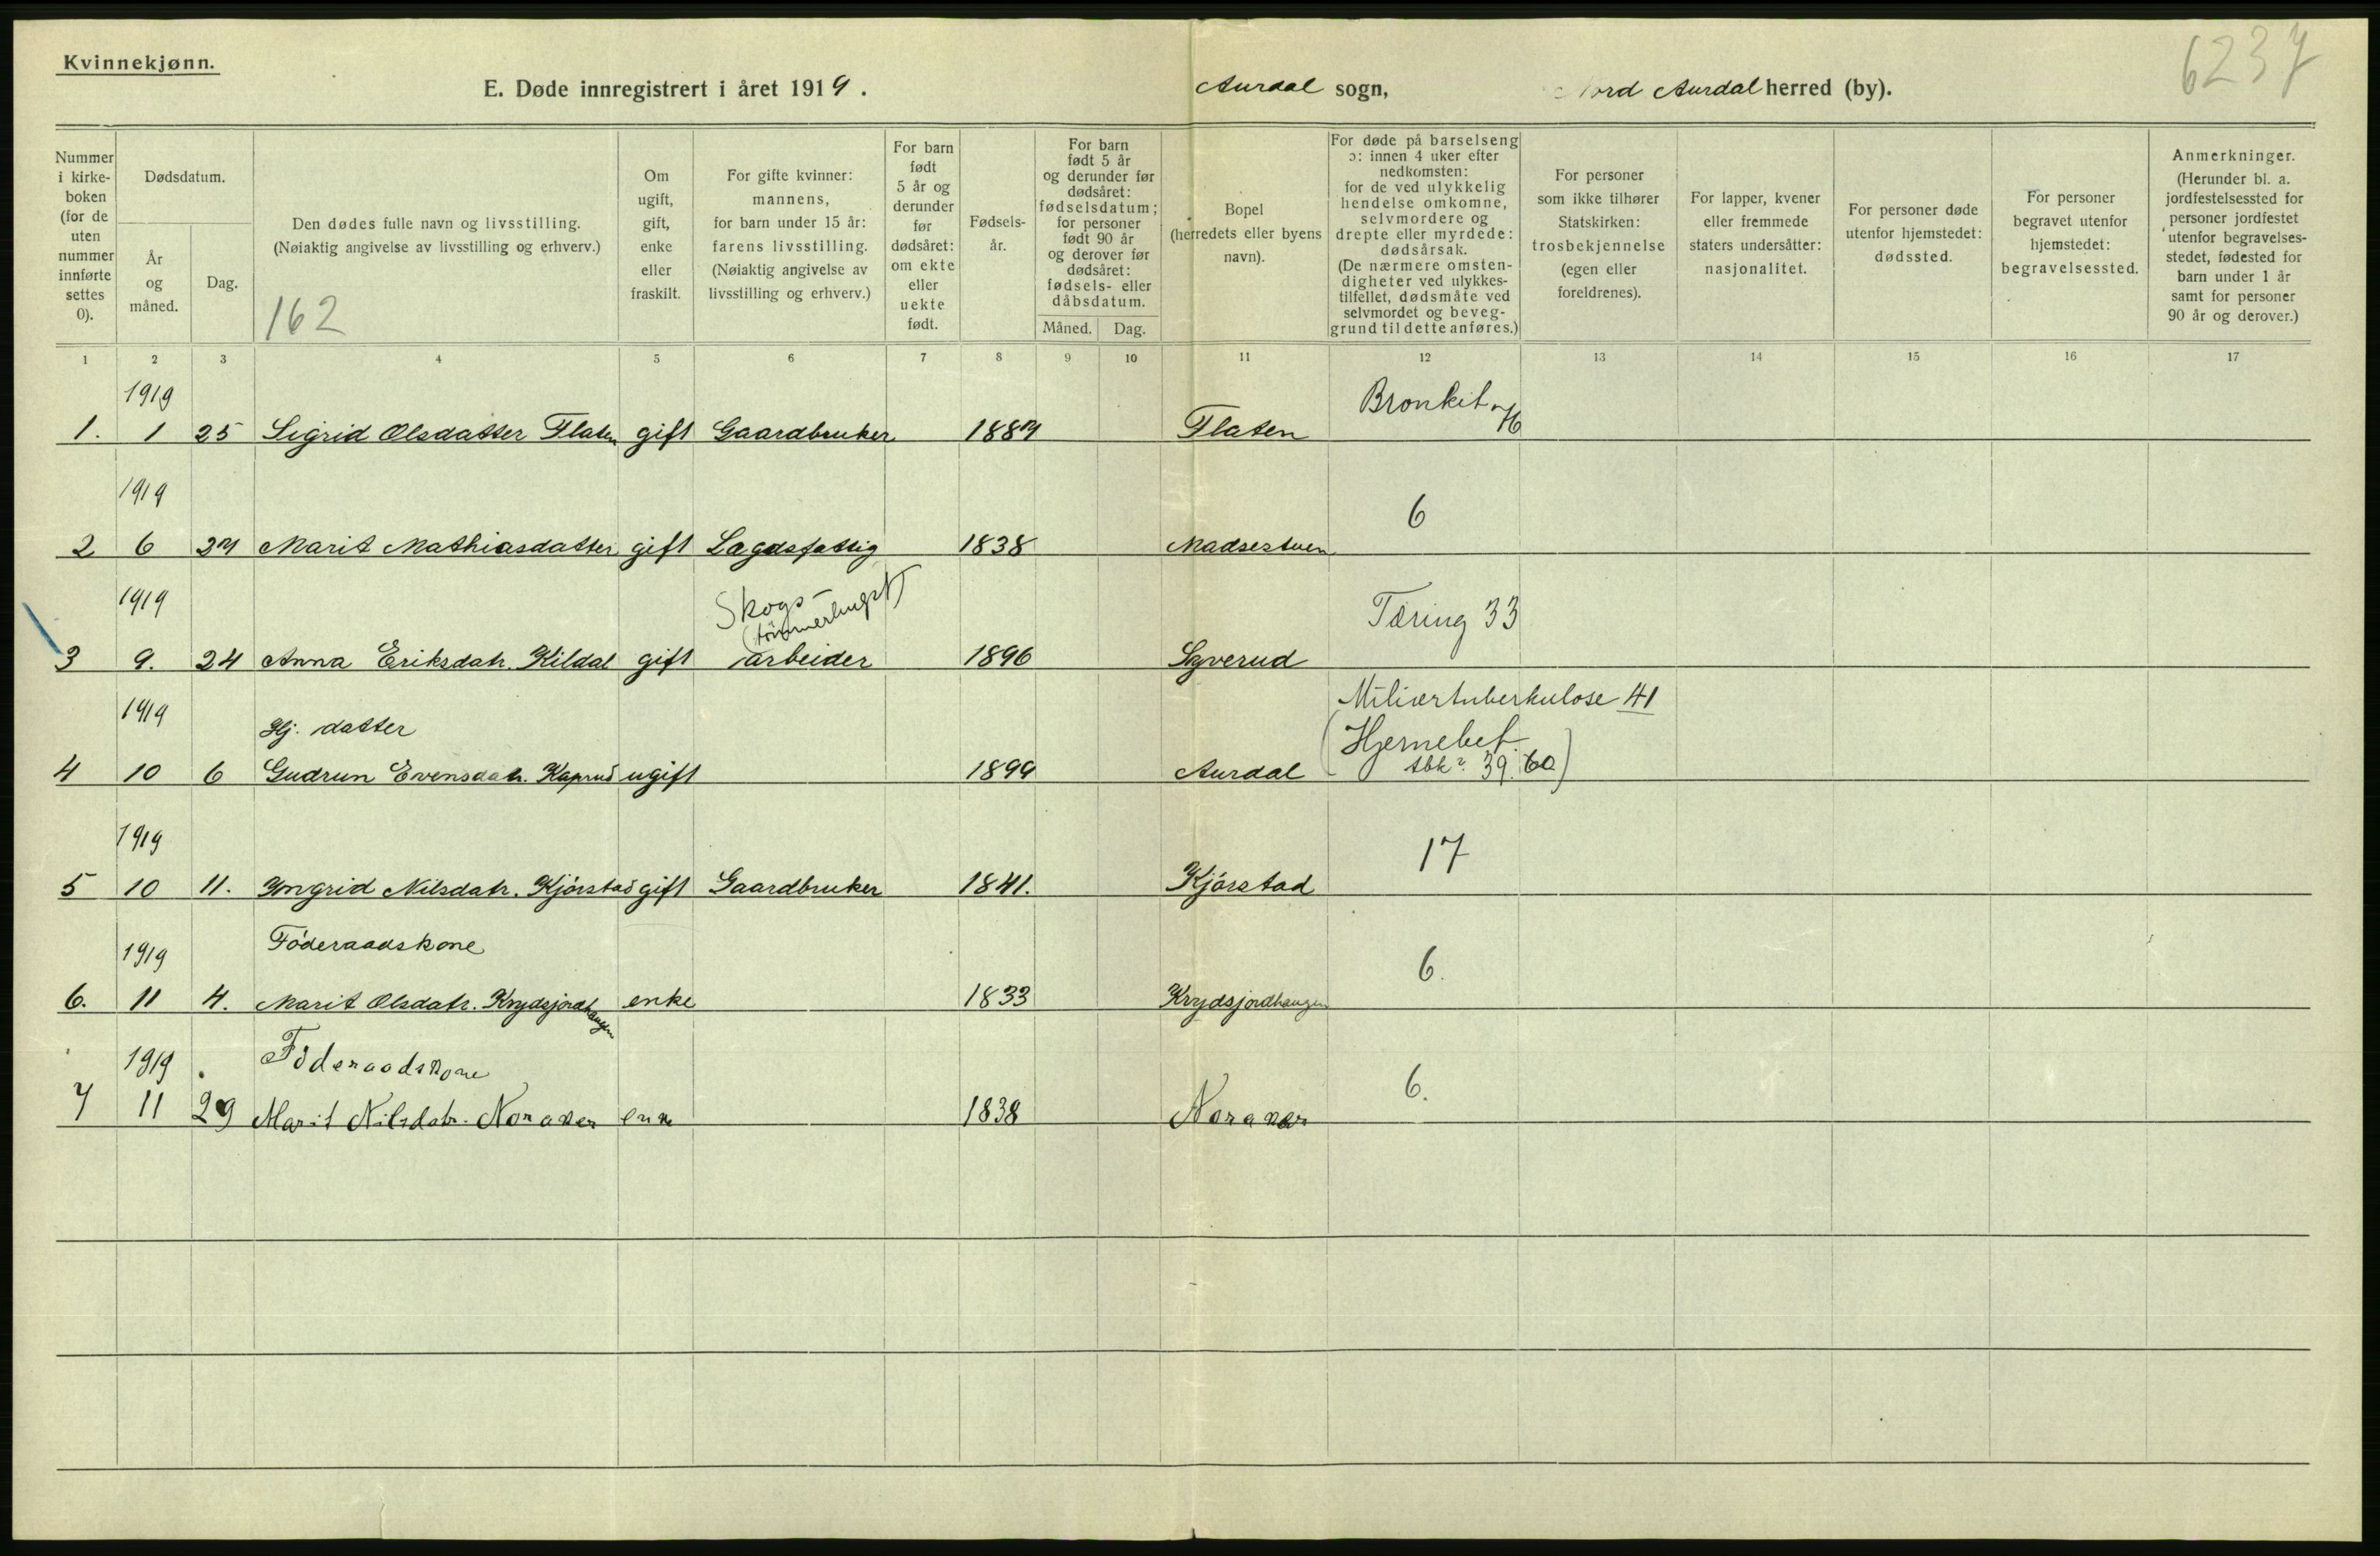 Kvinnekjønn.
6237
E. Døde innregistrert i året 1919. Aurdal sogn, Nord Aurdal herred (by).
Nummer i kirkeboken (for de uten nummer innførte settes 0).
Dødsdatum.
År og måned.
Dag.
Den dødes fulle navn og livsstilling.
(Nøiaktig angivelse av livsstilling og erhverv.)
162
Om ugift, gift, enke eller fraskilt.
For gifte kvinner: mannens, for barn under 15 år: farens livsstilling. (Nøiaktig angivelse av livsstilling og erhverv.)
For barn født 5 år og derunder før dødsåret: om ekte eller uekte født.
Fødselsår.
For barn født 5 år og derunder før dødsåret: fødselsdatum; for personer født 90 år og derover før dødsåret: fødsels- eller dåbsdatum.
Måned. Dag.
Bopel (herredets eller byens navn).
For døde på barselseng ɔ: innen 4 uker efter nedkomsten: for de ved ulykkelig hendelse omkomne, selvmordere og drepte eller myrdede: dødsårsak. (De nærmere omstendigheter ved ulykkestilfellet, dødsmåte ved selvmordet og beveggrund til dette anføres.)
For personer som ikke tilhører Statskirken: trosbekjennelse (egen eller foreldrenes).
For lapper, kvener eller fremmede staters undersåtter: nasjonalitet.
For personer døde utenfor hjemstedet: dødssted.
For personer begravet utenfor hjemstedet: begravelsessted.
Anmerkninger. (Herunder bl. a. jordfestelsessted for personer jordfestet utenfor begravelsesstedet, fødested for barn under 1 år samt for personer 90 år og derover.)
1 2 3 4 5 6 7 8 9 10 11 12 13 14 15 16 17
1919 Bronkit
1. 1 25 Sigrid Olsdatter Flaten gift Gaardbruker 1887 Flaten
1919 6
2 6 27 Marit Mathiasdatter gift Lægdsfattig 1838 Madsestuen
1919 Skogs- (tömmerhugst) Tæring 33
3 9. 24 Anna Eriksdatr. Kildal gift arbeider 1896 Syverud
1919 Hj. datter Miliærtuberkulose 41
(Hjernebet.
4 10 6 Gudrun Evensdatr. Kaprud ugift 1899 Aurdal tbk? 39. 60)
1919 17
5 10 11. Yngrid Nilsdatr. Kjörstad gift Gaardbruker 1841. Kjörstad
1919 Föderaadskone 6.
6. 11 4. Marit Olsdatr. Krydsjordhaugen enke 1833 Krydsjordhaugen
1919 Föderaadskone 6.
7 11 29 Marit Nilsdatr. Noraker enk 1838 Noraker